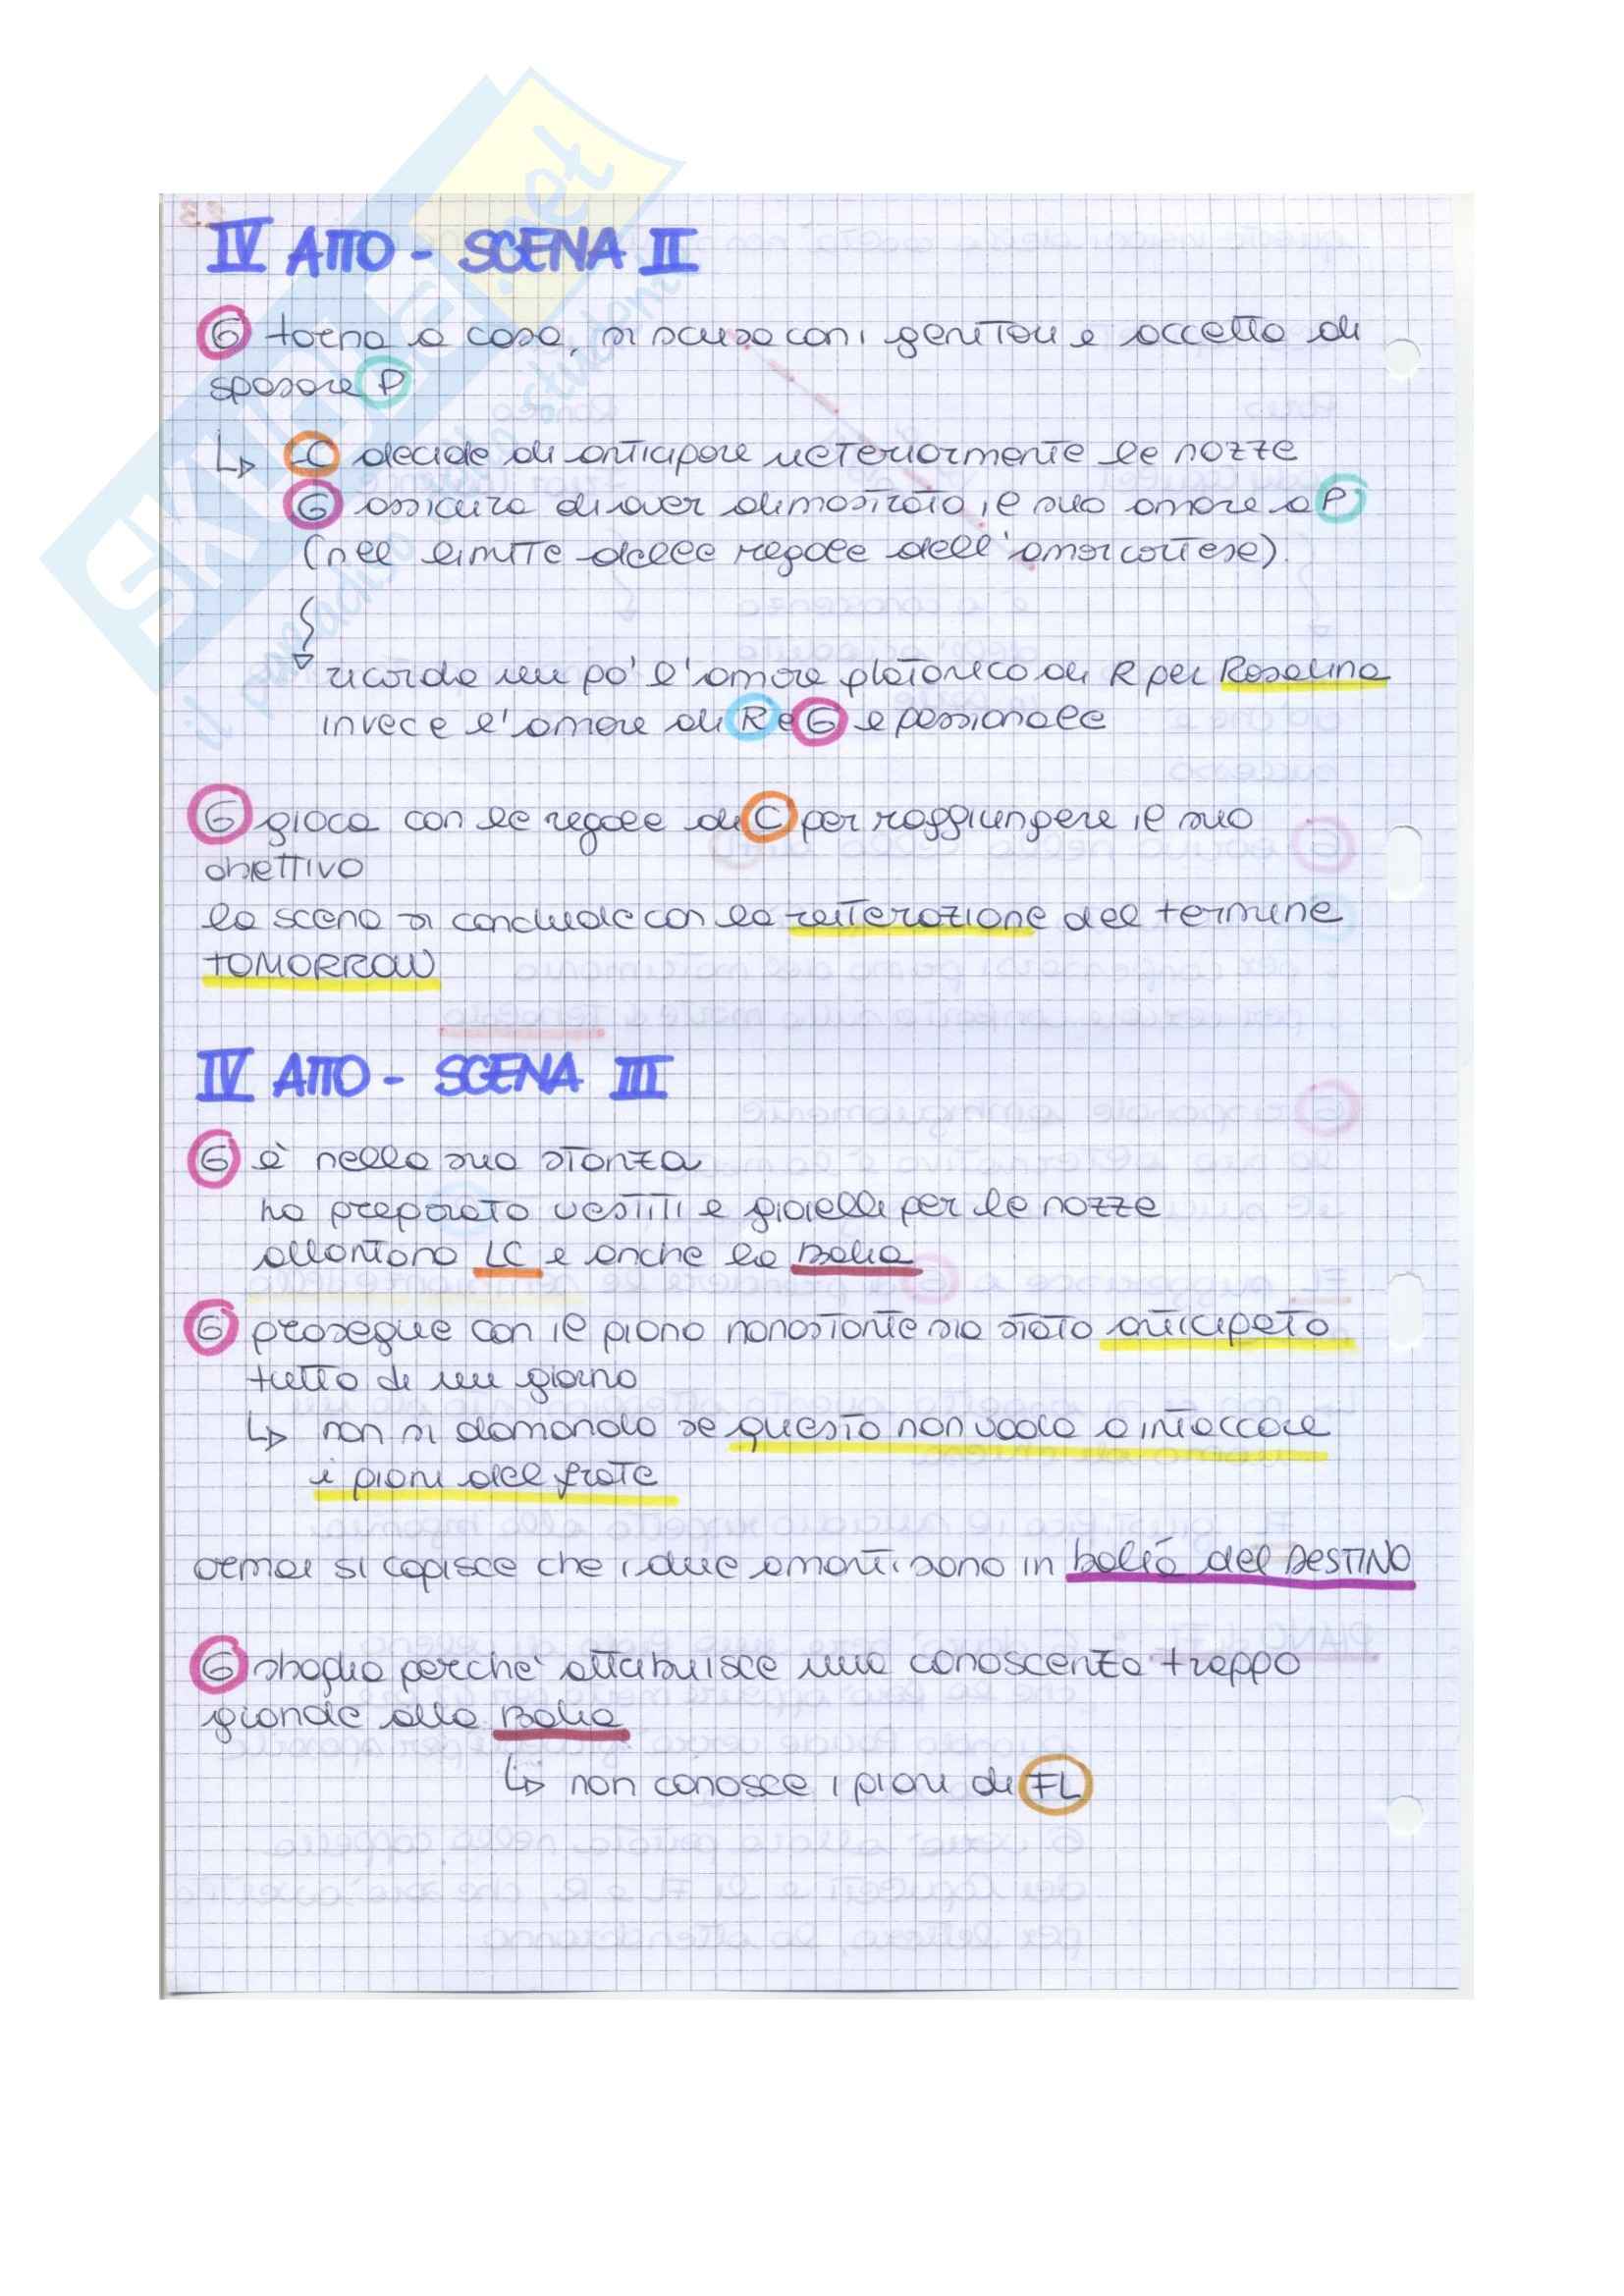 IV ATTO - SCENA II
G torna a casa, si scusa con i genitori e accetta di
sposare P
↳ C decide di anticipare ulteriormente le nozze
G assicura di aver dimostrato il suo amore a P
(nel limite delle regole dell'amor cortese).
ricorda un po' l'amore platonico di R per Rosalina
invece l'amore di R e G è passionale
G gioca con le regole di C per raggiungere il suo
obiettivo
la scena si conclude con la reiterazione del termine
TOMORROW
IV ATTO - SCENA III
G è nella sua stanza
ha preparato vestiti e gioielli per le nozze
allontana LC e anche la Balia
G prosegue con il piano nonostante sia stato anticipato
tutto di un giorno
↳ non si domanda se questo non vada a intaccare
i piani del frate
ormai si capisce che i due amanti sono in balìa del DESTINO
G sbaglia perchè attribuisce una conoscenza troppo
grande alla Balia
↳ non conosce i piani di FL
SKUOLA.net
il paradiso dello studente